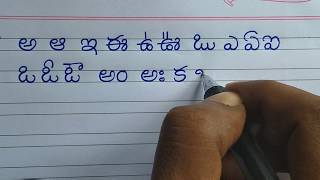 అ ఆ ఇ ఈ ఉ ఊ ఋ ఎ ఏ ఐ
ఒ ఓ ఔ అం అః క